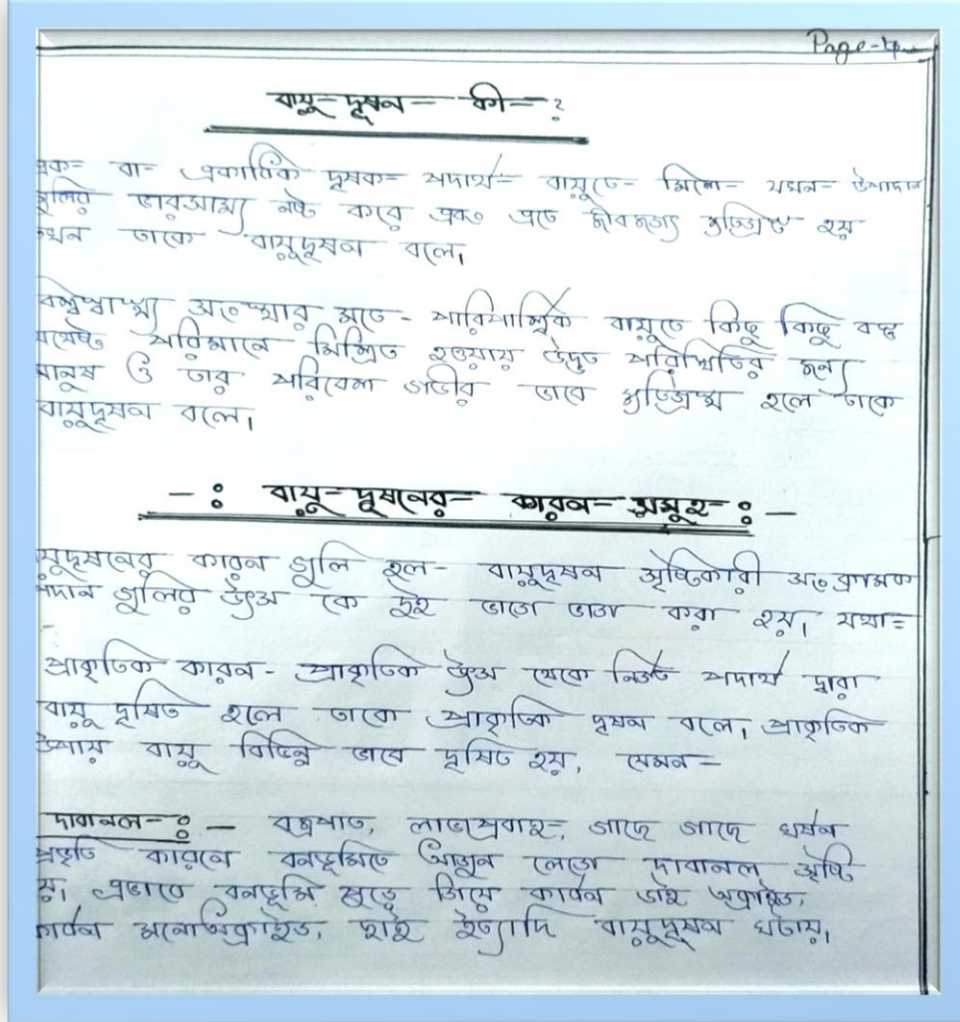 Page-4
বায়ু দূষন কী ?
এক বা একাধিক দূষক পদার্থ বায়ুতে মিশে যখন উপাদান
গুলির ভারসাম্য নষ্ট করে এবং এতে জীবজগৎ ক্ষতিগ্রস্ত হয়
তখন তাকে বায়ুদূষন বলে।
বিশ্বস্বাস্থ্য সংস্থার মতে - পারিপার্শ্বিক বায়ুতে কিছু কিছু বস্তু
যথেষ্ট পরিমানে মিশ্রিত হওয়ায় উদ্ভূত পরিস্থিতির জন্য
মানুষ ও তার পরিবেশ গভীর ভাবে ক্ষতিগ্রস্থ হলে তাকে
বায়ুদূষন বলে।
-: বায়ু দূষনের কারন সমূহ :-
য়ুদূষনের কারন গুলি হল - বায়ুদূষন সৃষ্টিকারী সংক্রামক
পদান গুলির উৎস কে দুই ভাগে ভাগ করা হয়। যথা =
প্রাকৃতিক কারন - প্রাকৃতিক উৎস থেকে নির্গত পদার্থ দ্বারা
বায়ু দূষিত হলে তাকে প্রাকৃতিক দূষন বলে। প্রাকৃতিক
উপায় বায়ু বিভিন্ন ভাবে দূষিত হয়, যেমন =
দাবানল :- বজ্রপাত, লাভাপ্রবাহ, গাছে গাছে ঘর্ষন
প্রভৃতি কারনে বনভূমিতে আগুন লেগে দাবানল সৃষ্টি
য়। এভাবে বনভূমি পুড়ে গিয়ে কার্বন ডাই অক্সাইড,
কার্বন মনোঅক্সাইড, ছাই ইত্যাদি বায়ুদূষন ঘটায়।